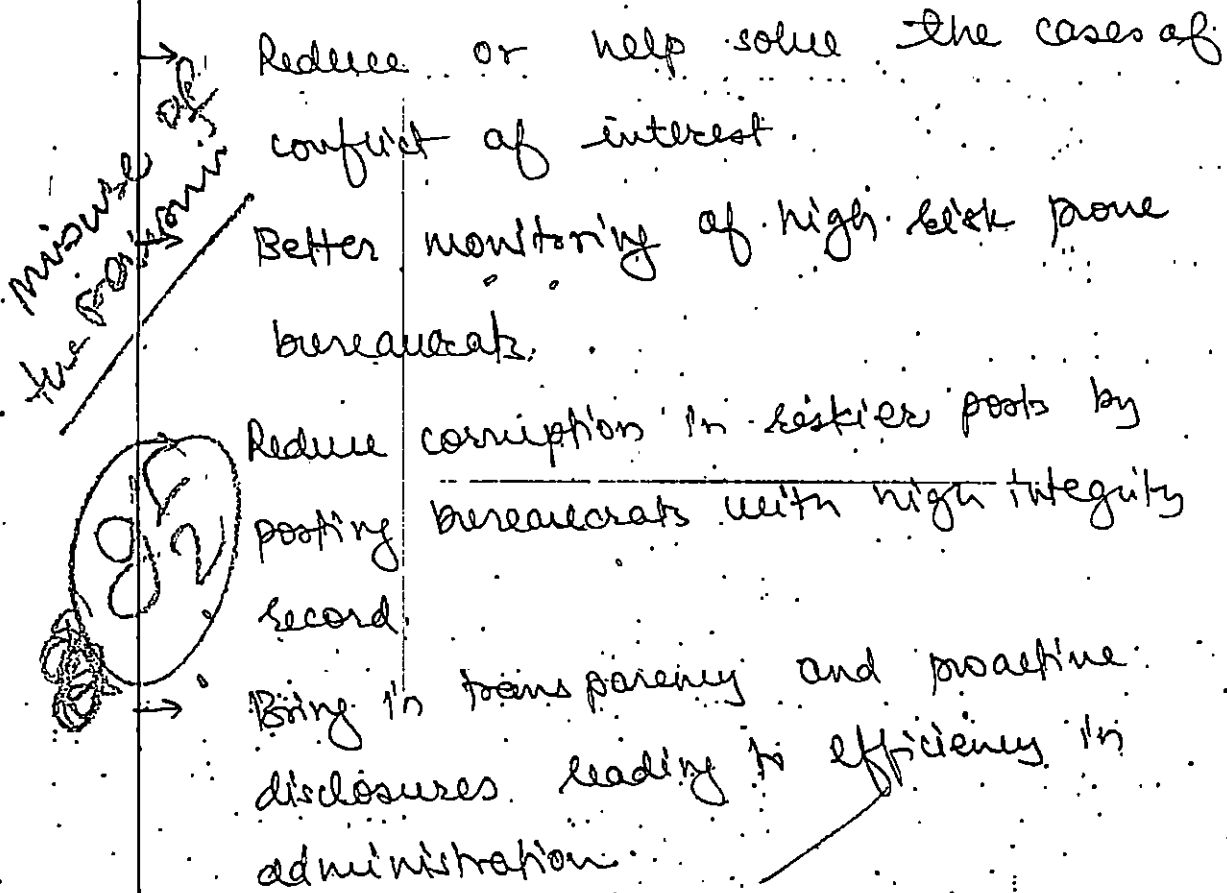 → Reduce or help solve the cases of
conflict of interest.
misuse of
the position
→ Better monitoring of high risk prone
bureaucrats.
→ Reduce corruption in riskier posts by
posting bureaucrats with high integrity
record.
→ Bring in transparency and proactive
disclosures leading to efficiency in
administration.